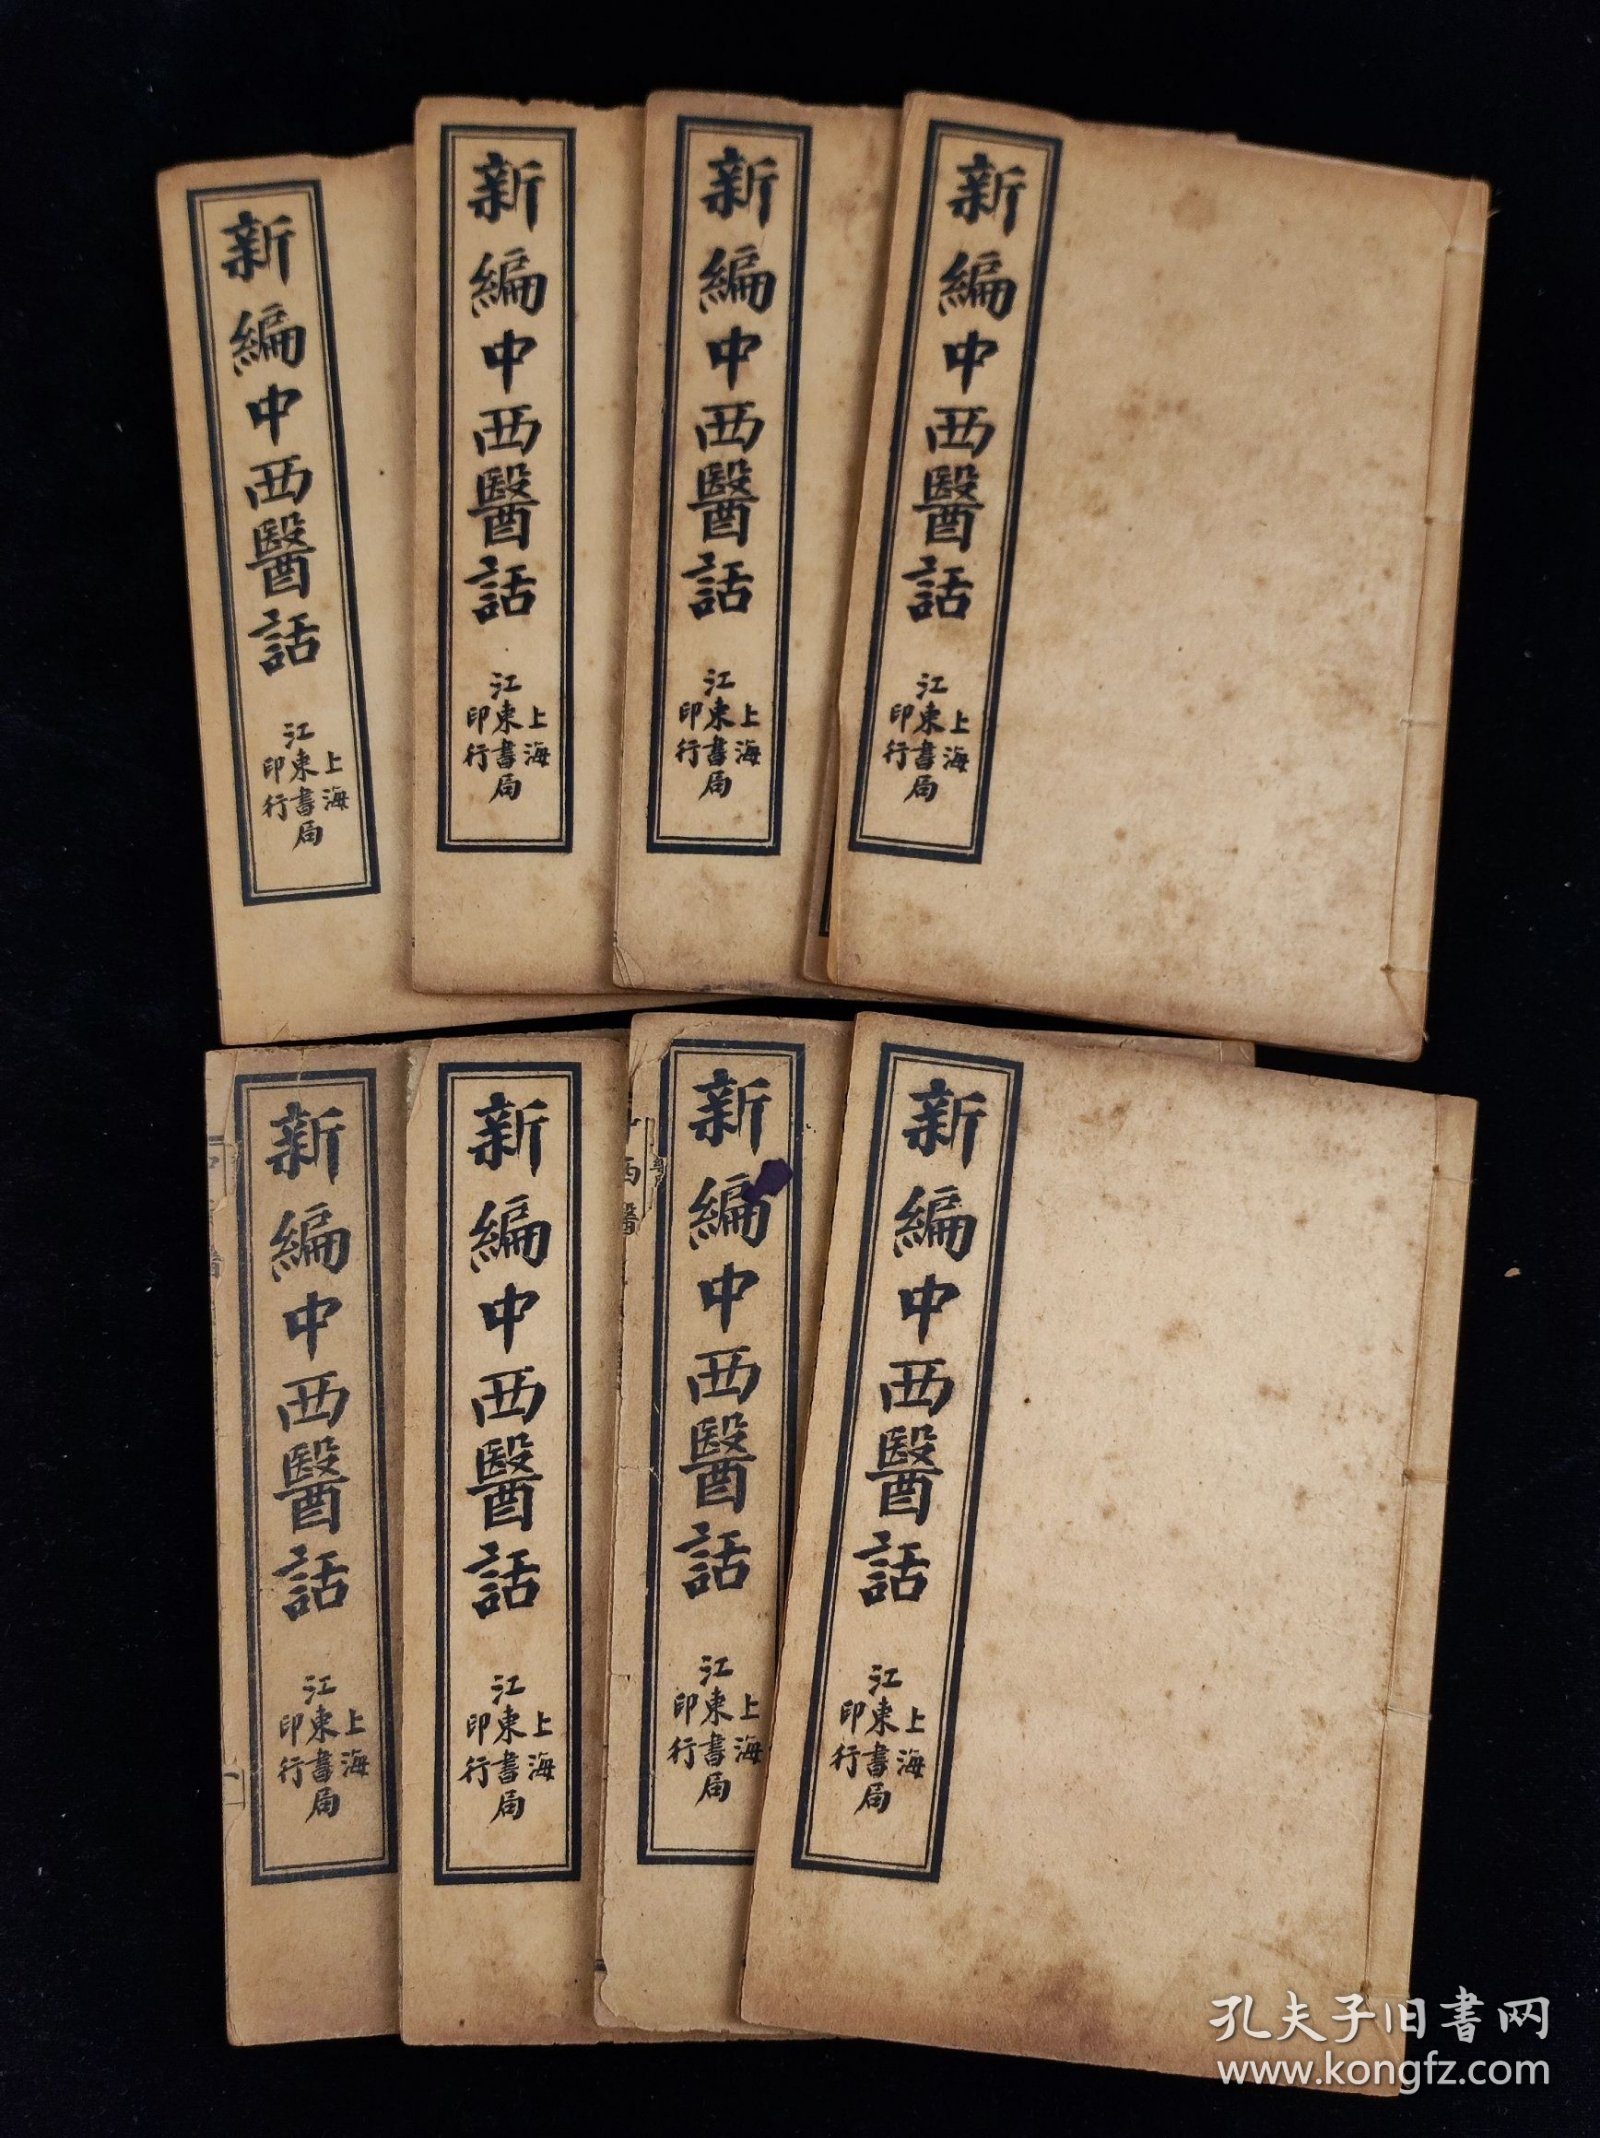 新編中西醫話
上海
江東書局
印行
新編中西醫話
上海
江東書局
印行
新編中西醫話
上海
江東書局
印行
新編中西醫話
上海
江東書局
印行
新編中西醫話
上海
江東書局
印行
新編中西醫話
上海
江東書局
印行
新編中西醫話
上海
江東書局
印行
西醫
新編中西醫話
上海
江東書局
印行
孔夫子旧书网
www.kongfz.com